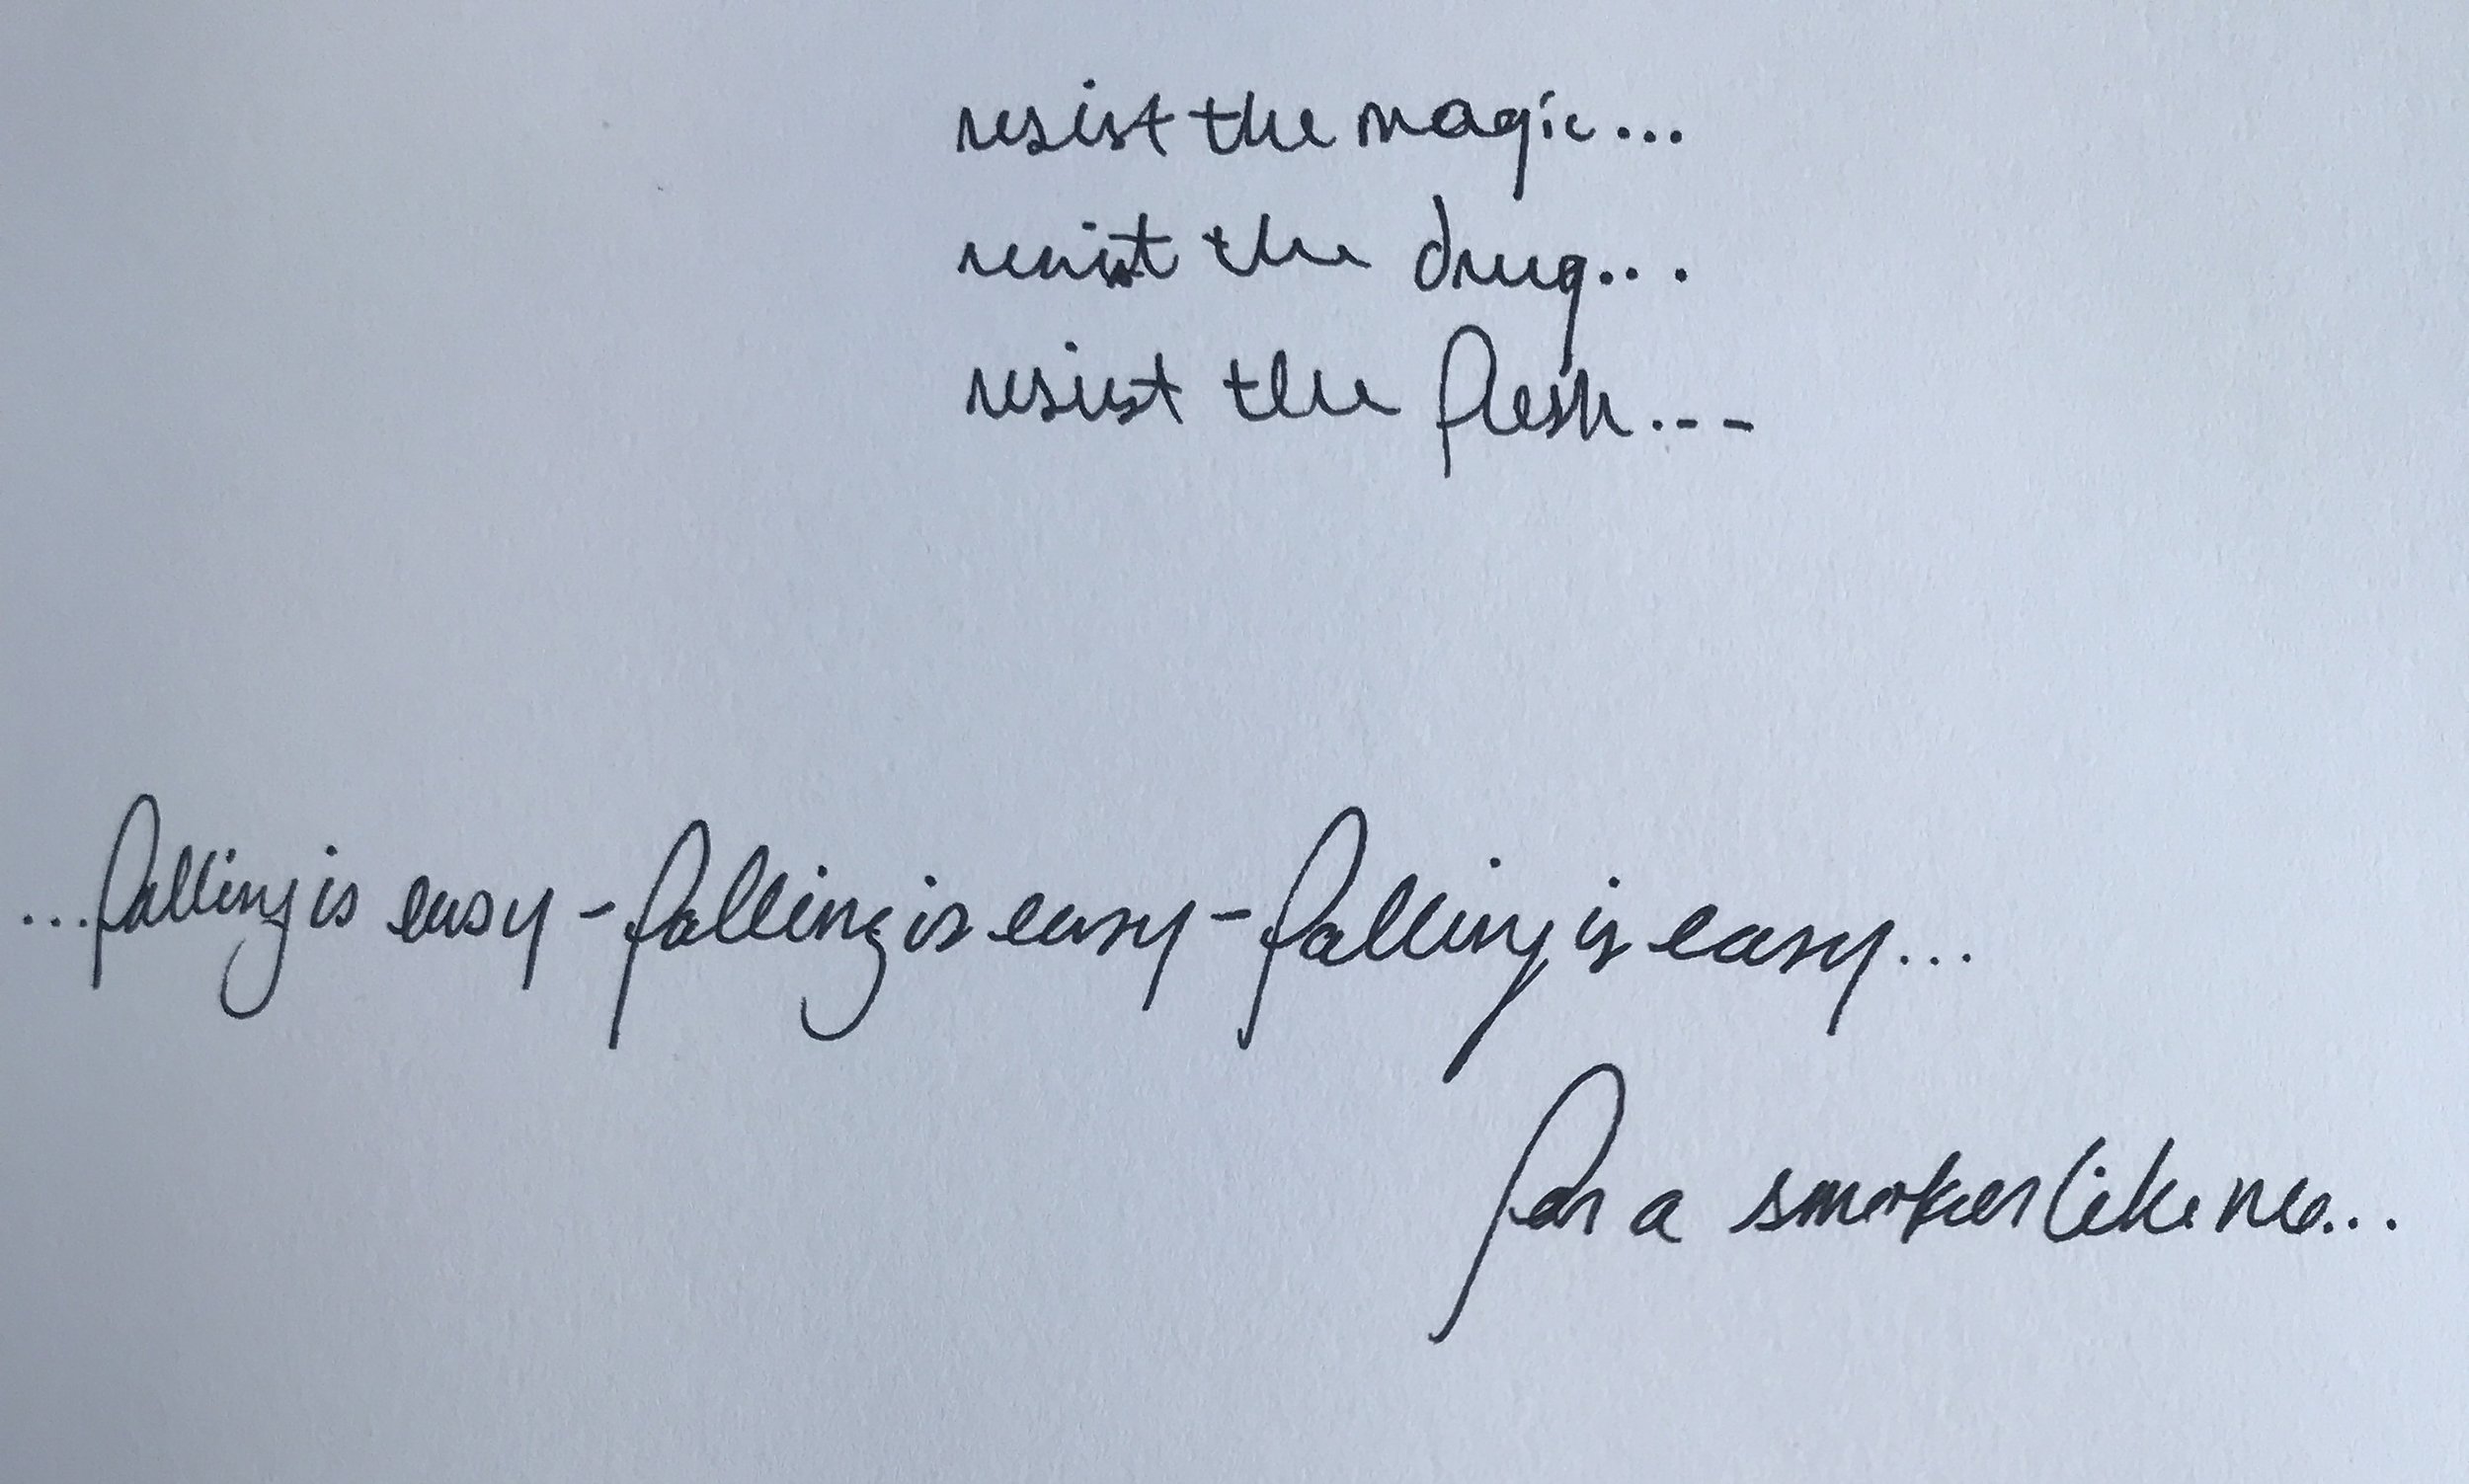 resist the magic...
resist the drug...
resist the flesh...
...falling is easy - falling is easy - falling is easy...
for a smoker like me...